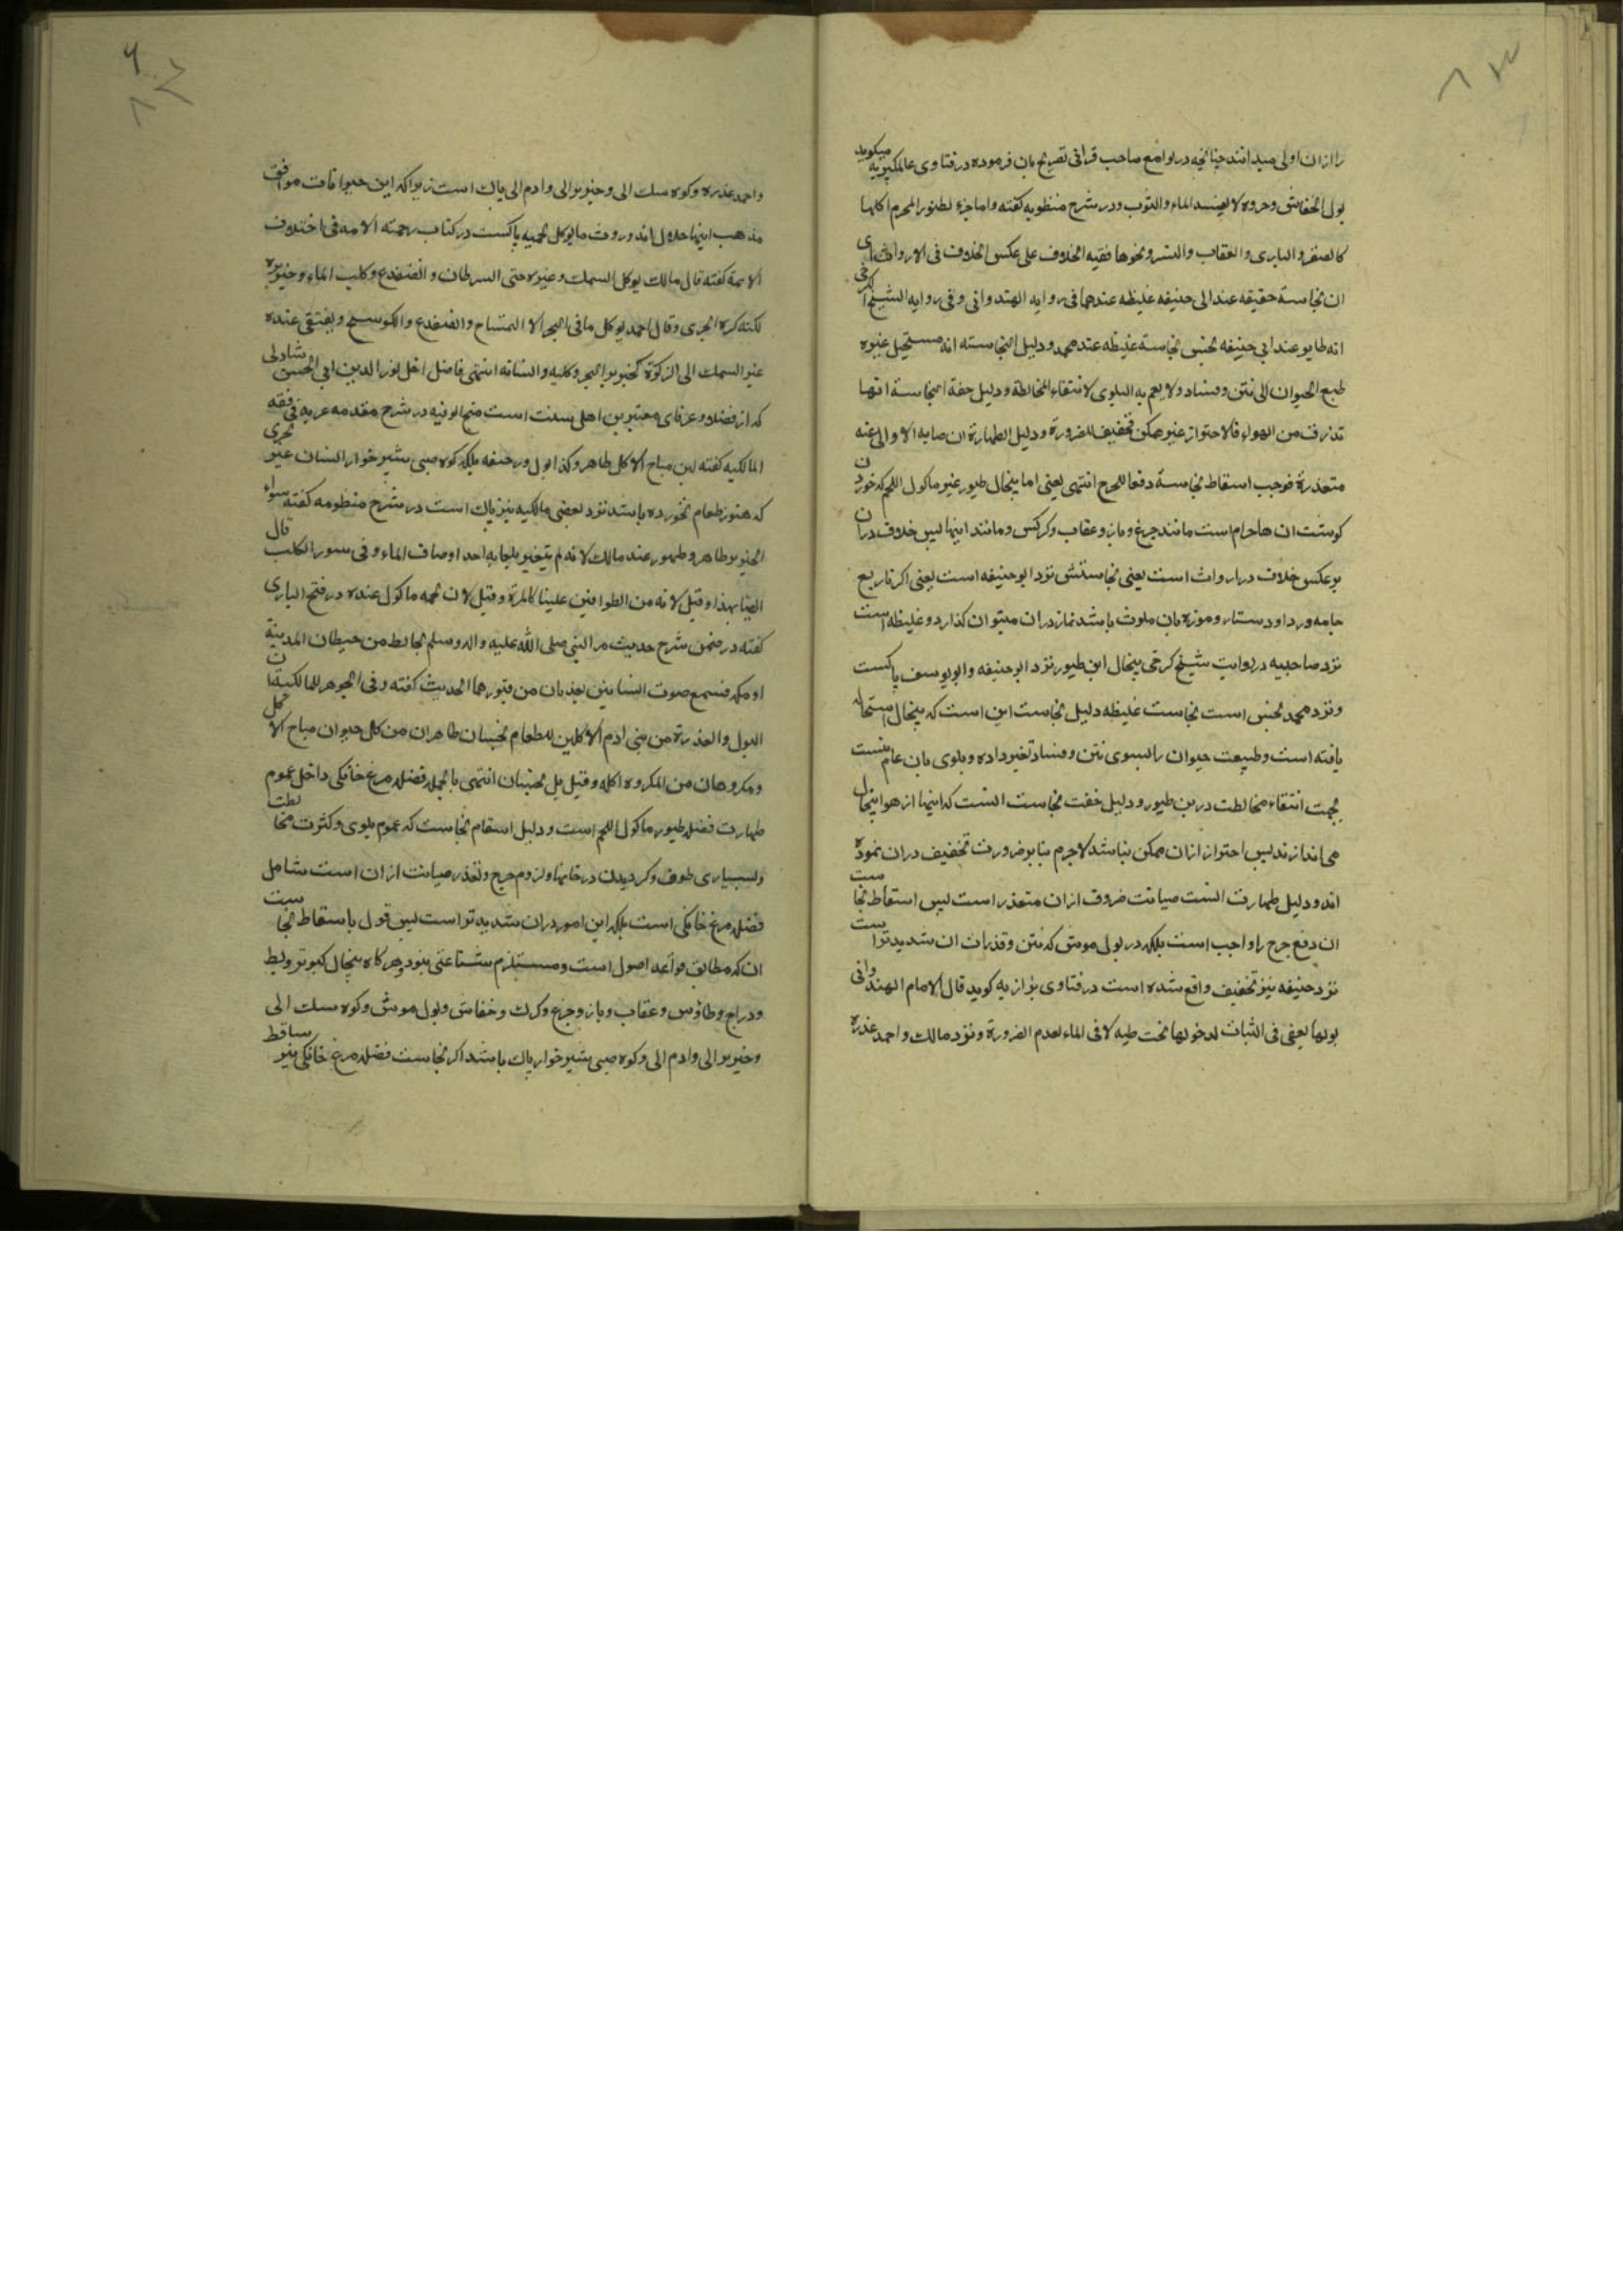 را ازان اولی میدانند چنانچه در لوامع صاحب قرانی تصریح بان فرموده در فتاوی عالمکیریه میکوید
بول الخفاش وخروه لا یفسد الماء والثوب ودر شرح منظومه کفته واما خرء لطیور المحرم اکلها
کالصقر والبازی والعقاب والنسر ونحوها ففیه الخلاف علی عکس الخلاف فی الارواث ای
ان نجاسة حقیقه عند ابی حنیفه غلیظه عندهما فی روایه الهندوانی وفی روایه الشیخ الکرخی
انه طاهر عند ابی حنیفه نجس نجاسة غلیظه عند محمد ودلیل النجاسته انه مستحیل غیره
طبع الحیوان الی نتن وفساد ولا یعم به البلوی لانتفاء المخالطة ودلیل خفة النجاسة انها
تذرف من الهواء فالاحتراز غیر ممکن تخفیف للضرورة ودلیل الطهارة ان صیانه الاوانی عنه
متعذرة فوجب اسقاط نجاسة دفعا للحرج انتهی یعنی اما پنجال طیور غیر ماکول اللحم که خوردن
کوشت ان ها حرام است مانند چرغ وباز وعقاب وکرکس ومانند اینها پس خلاف دران
بر عکس خلاف در ارواث است یعنی نجاستش نزد ابو حنیفه است یعنی اکر تا ربع
جامه وردا ودستار وموزه بان ملوث باشد نماز دران میتوان کذارد وغلیظه است
نزد صاحبیه در روایت شیخ کرخی پنجال این طیور نزد ابو حنیفه وابو یوسف پاکست
ونزد محمد نجس است نجاست غلیظه دلیل نجاست این است که پنجال استحاله
یافته است وطبیعت حیوان را بسوی نتن وفساد تغیر داده وبلوی بان عام نیست
بجهت انتفاء مخالطت درین طیور ودلیل خفت نجاست انست که اینها از هوا پنجال
می اندازند پس احتراز ازان ممکن نباشد لا جرم بنا بر ضرورت تخفیف دران نموده
اند ودلیل طهارت انست صیانت ظروف ازان متعذر است پس اسقاط نجاست
ان دفع حرج را واجب است بلکه در بول موش که نتن وقذرات ان شدید تر است
نزد حنیفه نیز تخفیف واقع شده است در فتاوی بزازیه کوید قال الامام الهندوانی
بولها یعفی فی الثیاب لدخولها تحت طیه لا فی الماء لعدم الضرورة ونزد مالک واحمد عذره
واحمد عذره وکوه سک ابی وخنزیر ابی وادم ابی پاک است زیرا که این حیوانات موافق
مذهب اینها حلال اند وروث مایوکل لحمه پاکست در کتاب رحمته الامه فی اختلاف
الایمة کفته قال مالک یوکل السمک وغیره حتی السرطان والضفدع وکلب الماء وخنزیره
لکنه کره الجری وقال احمد یوکل ما فی البحر الا التمساح والضفدع والکوسج ویفتقی عنده
غیر السمک الی الزکوة کخنزیر البحر وکلبه وانسانه انتهی فاضل اخل نور الدین ابی الحسن شاذلی
که از فضلا وعرفای معتبرین اهل سنت است منح الوفیه در شرح مقدمه عربه فی فقه
المالکیه کفته لبن مباح الاکل طاهر وکذا بول ورجیعه بلکه کوه صبی شیر خوار انسان غیر
که هنوز طعام نخورده باشد نزد بعضی مالکیه نیز پاک است در شرح منظومه کفته سواء
الخنزیر طاهر وطهور عند مالک لانه لم یتغیر بلعابه احد اوصاف الماء وفی سور الکلب قال
ایضا بهذا وقیل لانه من الطوافین علینا کالهرة وقیل لان لحمه ماکول عنده در فتح الباری
کفته در ضمن شرح حدیث مر النبی صلی الله علیه واله وسلم بحایط من حیطان المدینة
او مکه فسمع صوت انسانین یعذبان من قبورهما الحدیث کفته وفی الجوهر للمالکیة ان
البول والعذرة من بنی ادم الاکلین للطعام نجسان طاهران من کل حیوان مباح الاکل
ومکروهان من المکروه اکله وقیل بل نجسان انتهی بالجمله فضله مرغ خانکی داخل عموم
طهارت فضله طیور ماکول اللحم است ودلیل اسقام نجاست که عموم بلوی وکثرت مخالطت
وبسیاری طوف وکردیدن در خانها ولزوم حرج وتعذر صیانت ازان است شامل
فضله مرغ خانکی است بلکه این امور دران شدید تر است پس قول باسقاط نجاست
ان که مطابق قواعد اصول است ومستلزم شناعتی نبود وهرکاه پنجال کبوتر وبط
ودراج وطاؤس وعقاب وباز وچرغ وکرک وخفاش وبول موش وکوه سک ابی
وخنزیر ابی وادم ابی وکوه صبی شیر خوار پاک باشد اکر نجاست فضله مرغ خانکی نیز ساقط